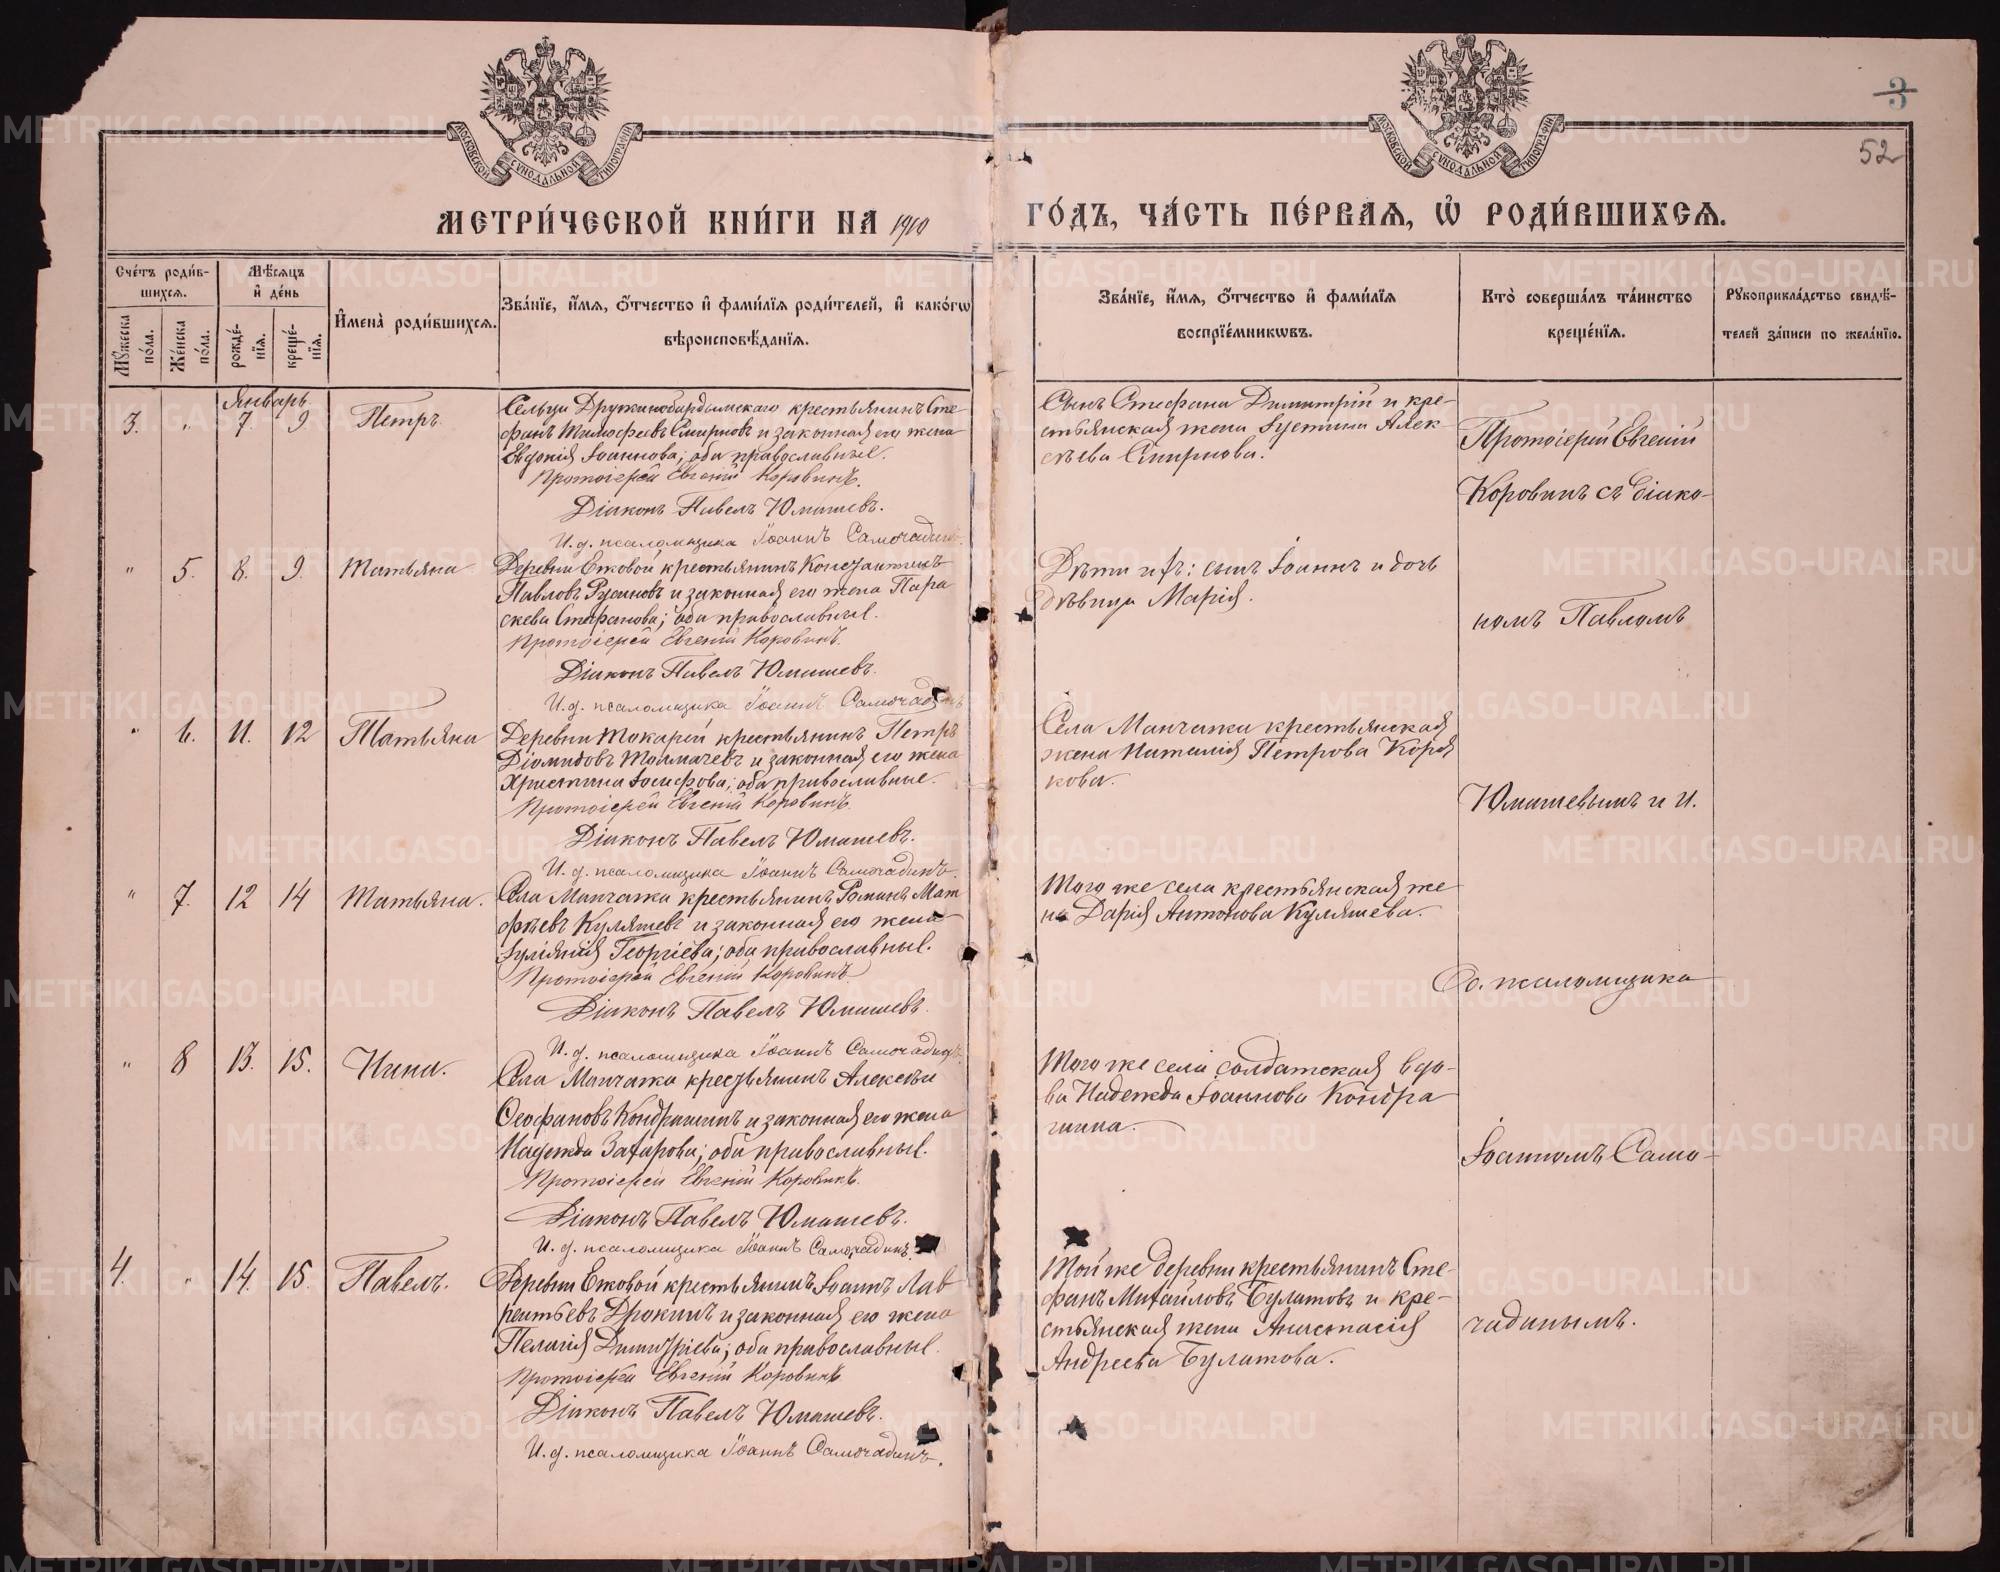 МОСКОВСКОЙ СѴНОДАЛЬНОЙ ТИПОГРАФІИ
МОСКОВСКОЙ СѴНОДАЛЬНОЙ ТИПОГРАФІИ
3
52
МЕТРИ́ЧЕСКОЙ КНИ́ГИ НА 1910
ГО́ДЪ, ЧА́СТЬ ПЕ́РВАЯ, Ѽ РОДИ́ВШИХСЯ.
Сче́тъ роди́в-
шихся.
Мѣсяцъ
и҆ де́нь
И҆мена̀ роди́вшихся.
Зва́нїе, и҆́мя, ѻ҆́тчество и҆ фами́лїя роди́телей, и҆ како́гѡ
вѣроисповѣ́данїя.
Мꙋ́жеска
по́ла.
Же́нска
по́ла.
рожде́-
нїя.
креще́-
нїя.
Зва́нїе, и҆́мя, ѻ҆́тчество и҆ фами́лїя
воспрїе́мникѡвъ.
Кто̀ соверша́лъ та́инство
креще́нїя.
Рꙋкоприкла́дство свидѣ́-
телей за́писи по жела́нїю.
Январь
3. " 7 9 Петръ
Сельца Дружинобардымскаго крестьянинъ Сте-
фанъ Тимофеевъ Смирновъ и законная его жена
Евдокія Іоаннова; оба православные.
Протоіерей Евгеній Коровинъ.
Діаконъ Павелъ Юмашевъ.
И. д. псаломщика Іоаннъ Самочадинъ.
Сынъ Стефана Димитрій и кре-
стьянская жена Іустина Алек-
сѣева Смирнова.
Протоіерей Евгеній
Коровинъ съ діако-
" 5. 8. 9. Татьяна
Деревни Ежовой крестьянинъ Константинъ
Павловъ Русиновъ и законная его жена Пара
скева Стефанова; оба православные.
Протоіерей Евгеній Коровинъ.
Діаконъ Павелъ Юмашевъ.
И. д. псаломщика Іоаннъ Самочадинъ
Дѣти ихъ: сынъ Іоаннъ и дочь
дѣвица Марія.
номъ Павломъ
" 6. 11. 12 Татьяна
Деревни Токарей крестьянинъ Петръ
Діомидовъ Толмачевъ и законная его жена
Христина Іосифова; оба православные.
Протоіерей Евгеній Коровинъ.
Діаконъ Павелъ Юмашевъ.
И. д. псаломщика Іоаннъ Самочадинъ.
Села Манчажа крестьянская
жена Наталія Петрова Коря
кова.
Юмашевымъ и И.
" 7. 12 14 Татьяна.
Села Манчажа крестьянинъ Романъ Мат
фѣевъ Куляшевъ и законная его жена
Іуліанія Георгіева; оба православные.
Протоіерей Евгеній Коровинъ
Діаконъ Павелъ Юмашевъ.
И. д. псаломщика Іоаннъ Самочадинъ.
Того же села крестьянская же
на Дарія Антонова Куляшева.
д. псаломщика
" 8 13. 15. Нина.
Села Манчажа крестьянинъ Алексѣй
Ѳеофановъ Кондрашинъ и законная его жена
Надежда Захарова; оба православные.
Протоіерей Евгеній Коровинъ.
Діаконъ Павелъ Юмашевъ.
И. д. псаломщика Іоаннъ Самочадинъ.
Того же села солдатская вдо-
ва Надежда Іоаннова Кондра
шина.
Іоанномъ Само-
4. " 14. 15. Павелъ.
Деревни Ежовой крестьянинъ Іоаннъ Лав
рентьевъ Дрокинъ и законная его жена
Пелагія Димитріева; оба православные.
Протоіерей Евгеній Коровинъ
Діаконъ Павелъ Юмашевъ.
И. д. псаломщика Іоаннъ Самочадинъ.
Той же деревни крестьянинъ Сте-
фанъ Михайловъ Булатовъ и кре-
стьянская жена Анастасія
Андреева Булатова.
чадинымъ.
METRIKI.GASO-URAL.RU